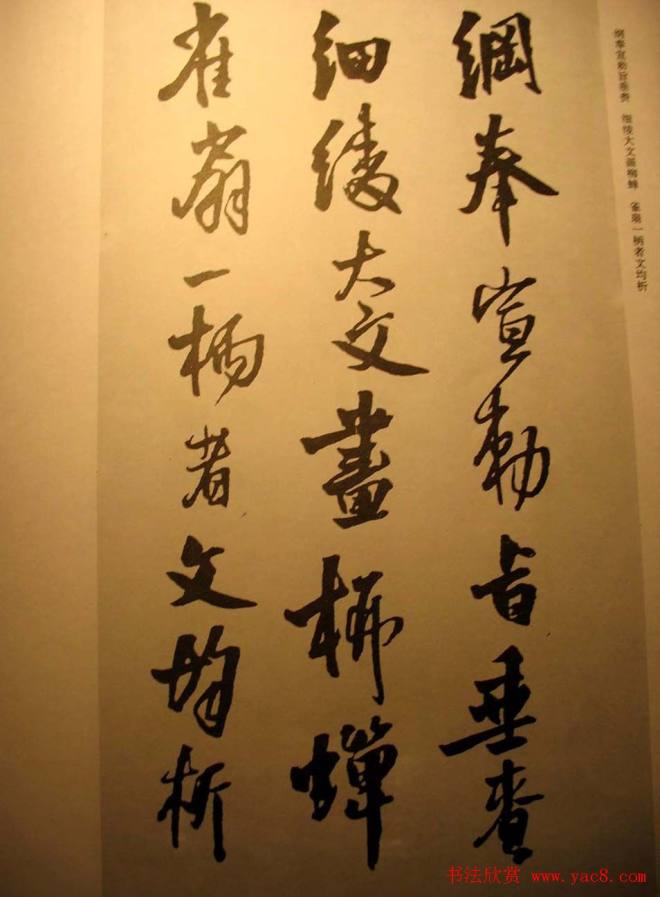 綱奉宣勑旨垂賚
細綾大文畫柳蟬
雀扇一柄者文均析
纲奉宣勑旨垂赉 细陵大文画柳蝉 雀扇一柄者文均析
书法欣赏 www.yac8.com